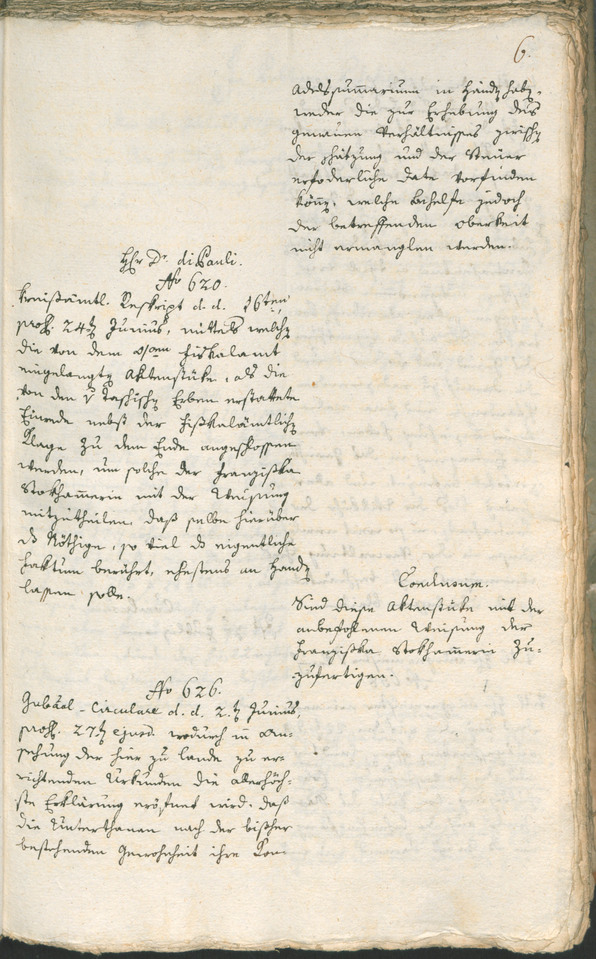 6.
Adelssummarium in Händen haben,
weder die zur Erhebung des
genauen Verhältnisses zwischen
der Schätzung und der Steuer
erfoderliche Date vorfinden
könn, welche Behelfe jedoch
der betreffenden Oberkeit
nicht ermanglen werden.
Hhr Dr. di Pauli.
No 620.
Kreisämtl. Reskript d. d. 16ten
prs. 24ten Junius, mittels welchen
die von dem Fiskalamt
eingelangten Aktenstüke, als die
von den v Taschischen Erben erstattete
Einrede nebst der Fiskalämtlichen
Klage zu dem Ende angeschlossen
werden, um solche der Franziska
Stokhamerin mit der Weisung
mitzutheilen, daß selbe hierüber
ds Nöthige, so viel ds eigentliche
Faktum berührt, ehestens an Handen
lassen solle.
Conclusum.
Sind diese Aktenstüke mit der
anbefohlenen Weisung der
Franziska Stokhamerin zu-
zufertigen.
No 626.
Gubial-Circulare d. d. 2.ten Junius,
prs. 27ten ejusd. wodurch in An-
sehung der hier zu Lande zu er-
richtenden Urkunden die allerhöch-
ste Erklärung eröfnet wird: daß
die Unterthanen nach der bisher
bestehenden Gewohnheit ihre Kon-